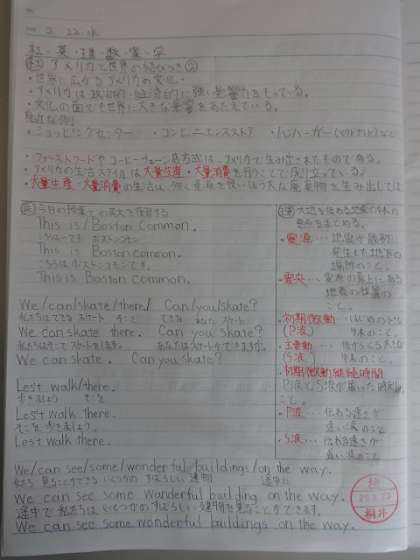 2. 22. 水
社・英・理・数・家・学
社 アメリカと世界の結びつき
・世界に広がるアメリカの文化・
・アメリカは政治的・経済的に強い影響力をもっている。
・文化の面でも世界に大きな影響をあたえている。
身近な例
・ショッピングセンター ・コンビニエンスストア ・ハンバーガー
・ファーストフードやコーヒーチェーン店方式は、アメリカで生み出されたものである。
・アメリカの生活スタイルは大量生産・大量消費を行うことで成り立っている
・大量生産・大量消費の生活は、多くの資源を使い、ぼう大な廃棄物を生み出して
英 今日の授業での英文を復習する
This is / Boston Common.
こちらは〜です ボストンコモン
This is Boston common.
こちらはボストンコモンです。
This is Boston common.
We / can / skate / there / Can / you / skate?
私たちは できる スケート そこで できる あなた スケート
We can skate there. Can you skate?
私たちはそこでスケートをします。 あなたはスケートができますか。
We can skate. Can you skate?
Lest walk / there.
歩きましょう そこを
Lest walk there.
そこを歩きましょう。
Lest walk there.
We / can see / some / wonderful buildings / on the way.
私たち 見ることができる いくつかの すばらしい 建物 途中で
We can see some wanderful building on the way.
途中で私たちはいくつかのすばらしい建物を見ることができます。
We can see some wonderful buildings on the way.
理 大地を伝える地震のゆれの
・震源…地震が最初に
発生した地下の
場所のこと。
・震央…震源の真上にある
地表の位置の
こと。
・初期微動 はじめの小さな
(P波) ゆれのこと。
・主要動 後からくる大きな
(S波) ゆれのこと。
・初期微動継続時間
P波とS波が届いた時刻の差
のこと。
・P波…伝わる速さが
速い波のこと
・S波…伝わる速さが
遅い波のこと